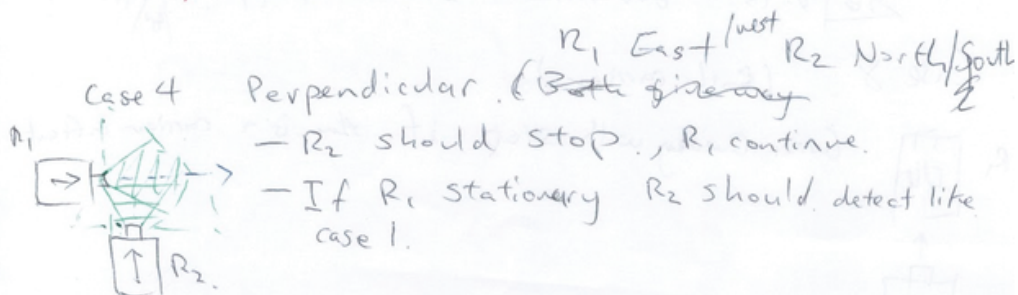 R₁ East/west R₂ North/South
Case 4 Perpendicular. (Both giveaway
R₁
- R₂ should stop., R₁ continue.
- If R₁ stationary R₂ should detect like
case 1.
R₂.